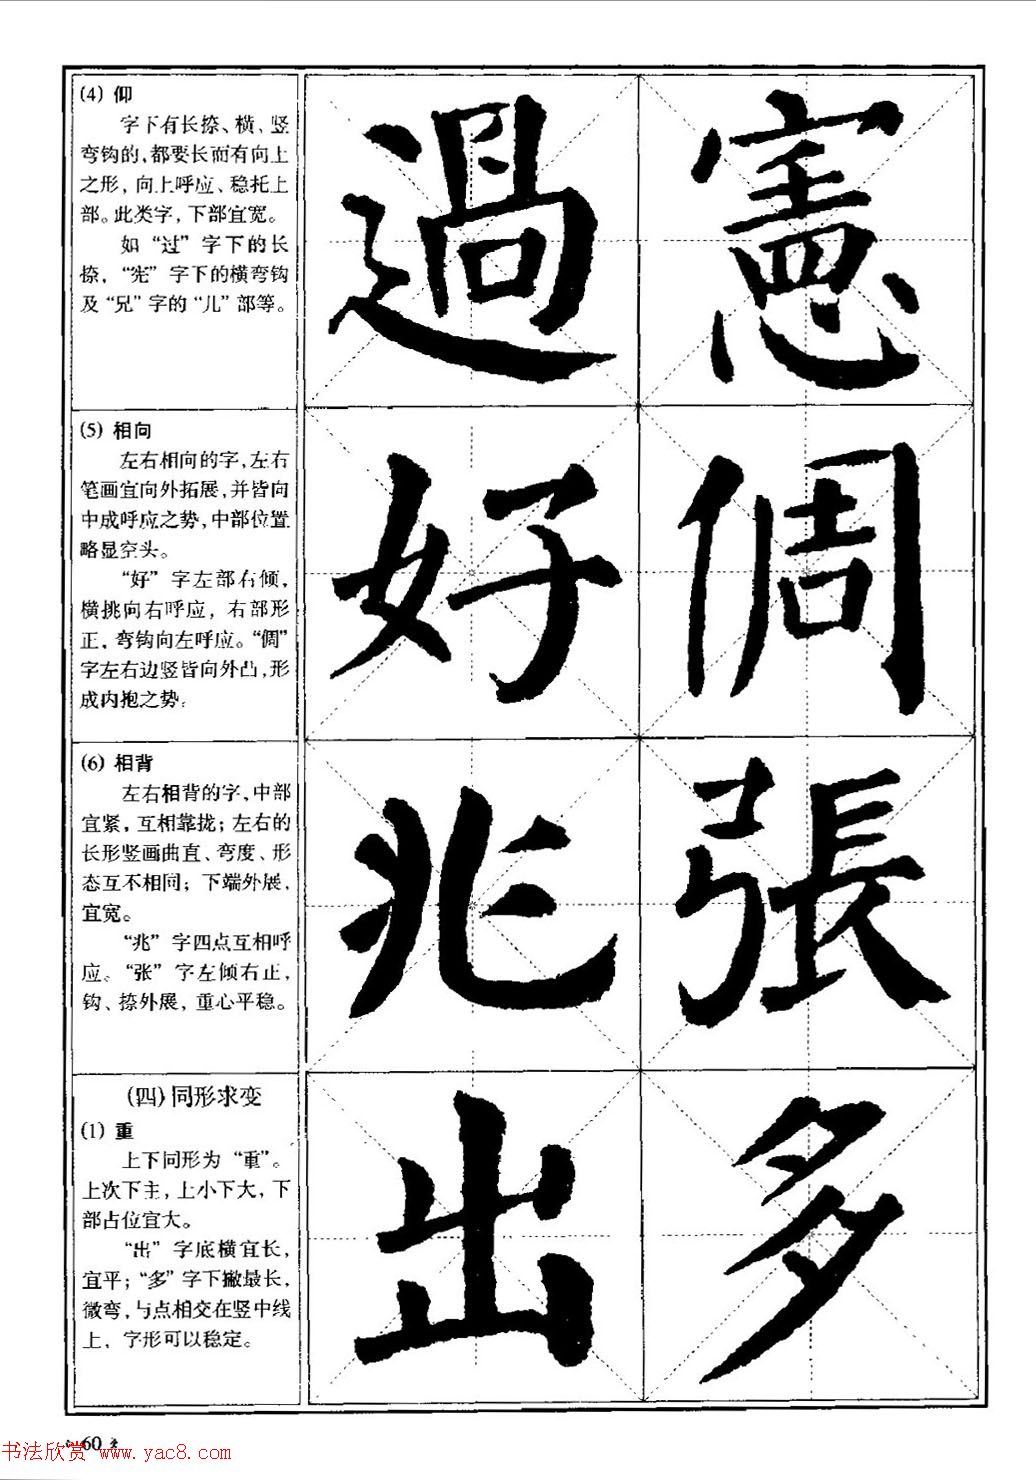 (4) 仰
字下有长捺、横、竖
弯钩的,都要长而有向上
之形, 向上呼应、稳托上
部。此类字, 下部宜宽。
如“过”字下的长
捺, “宪”字下的横弯钩
及“兄”字的“儿”部等。
過 憲
(5) 相向
左右相向的字,左右
笔画宜向外拓展,并皆向
中成呼应之势,中部位置
略显空头。
“好”字左部右倾,
横挑向右呼应, 右部形
正, 弯钩向左呼应。“倜”
字左右边竖皆向外凸,形
成内抱之势。
好 倜
(6) 相背
左右相背的字,中部
宜紧, 互相靠拢; 左右的
长形竖画曲直、弯度、形
态互不相同; 下端外展,
宜宽。
“兆”字四点互相呼
应。“张”字左倾右正,
钩、捺外展, 重心平稳。
兆 張
(四) 同形求变
(1) 重
上下同形为“重”。
上次下主, 上小下大, 下
部占位宜大。
“出”字底横宜长,
宜平; “多”字下撇最长,
微弯, 与点相交在竖中线
上, 字形可以稳定。
出 多
60
书法欣赏 www.yac8.com